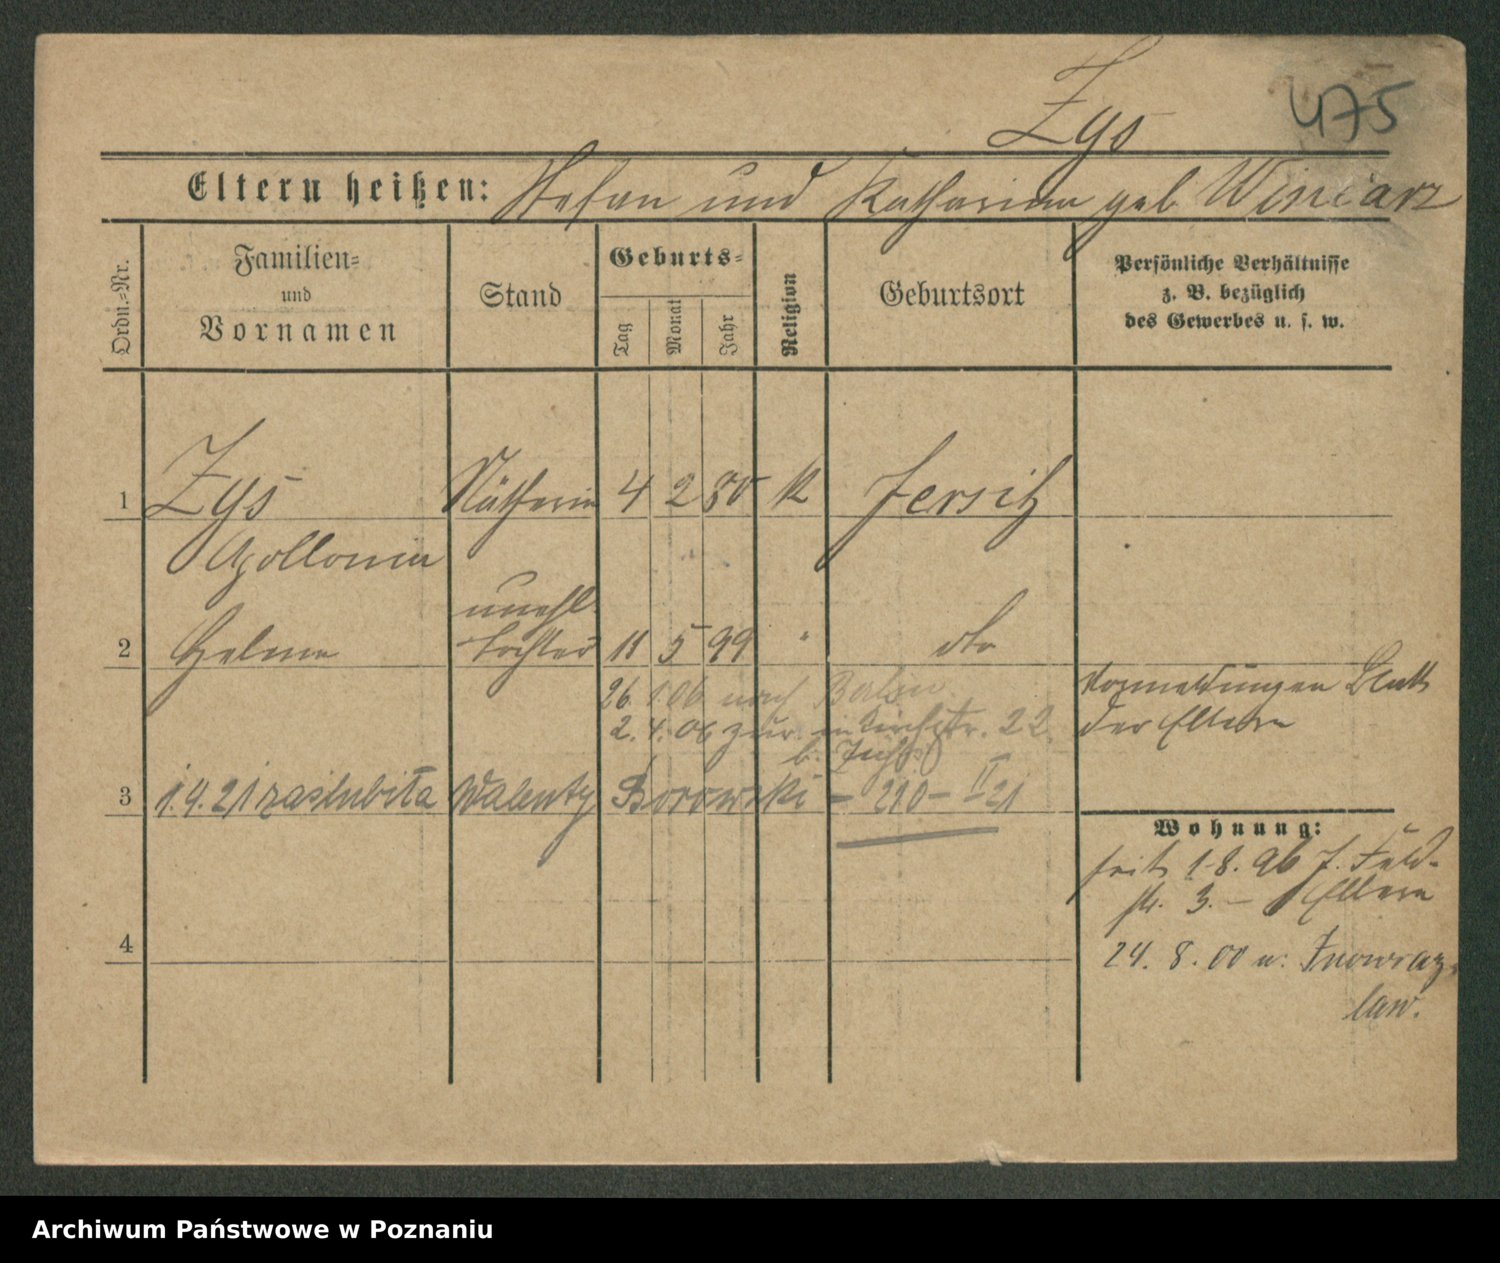 Zys
475
Eltern heißen: Stefan und Katharina geb Winiarz
Ordn.-Nr.
Familien-
und
Vornamen
Stand
Geburts-
Tag
Monat
Jahr
Religion
Geburtsort
Persönliche Verhältnisse
z. B. bezüglich
des Gewerbes u. s. w.
1 Zys Nätherin 4 2 80 K Jersitz
Apollonia
unehl.
2 Helene Tochter 11 5 99 " dto
26. 1.06 nach Berlin
2. 4. 06 zur. 22
b.
Vormeldungen Blatt
der Eltern
3 1.4.21 zaslubiła Walenty Borowski – 210 – II 21
Wohnung:
seit 1.8.96 J. Feld-
str. 3. – Eltern
4
24. 8. 00 n. Inowraz-
law.
Archiwum Państwowe w Poznaniu